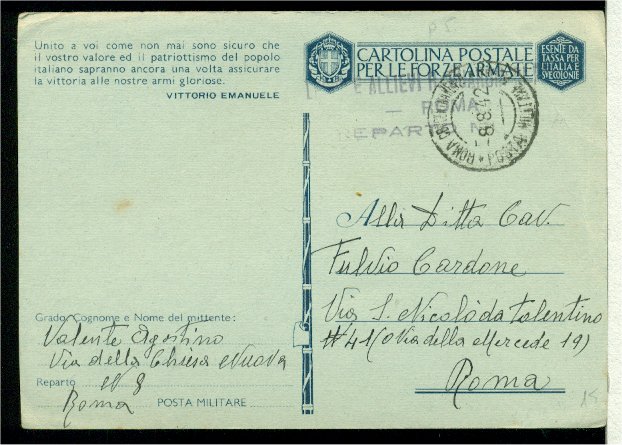 P 5
Unito a voi come non mai sono sicuro che
il vostro valore ed il patriottismo del popolo
italiano sapranno ancora una volta assicurare
la vittoria alle nostre armi gloriose.
VITTORIO EMANUELE
CARTOLINA POSTALE
PER LE FORZE ARMATE
ESENTE DA
TASSA PER
L'ITALIA E
SUE COLONIE
E ALLIEVI
— ROMA
REPARTO
ROMA
POSTA
8.8.42
Alla Ditta Cav.
Fulvio Cardone
Via S. Nicolò da Tolentino
# 41 (o Via della Mercede 19)
Roma
Grado, Cognome e Nome del mittente:
Valente Agostino
Via della Chiesa Nuova
Reparto N 8
Roma POSTA MILITARE
15